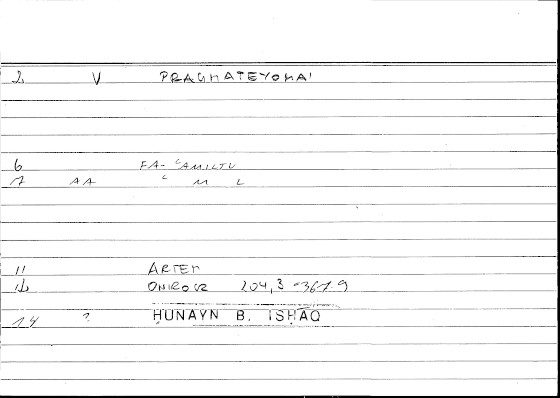 2. V PRAGMATEYOMAI
6 FA-ʿAMILTU
7 AA ʿ M L
11 ARTEM
12 ONIROCR 204,3 - 367.9
14 ? ḤUNAYN B. ISḤĀQ